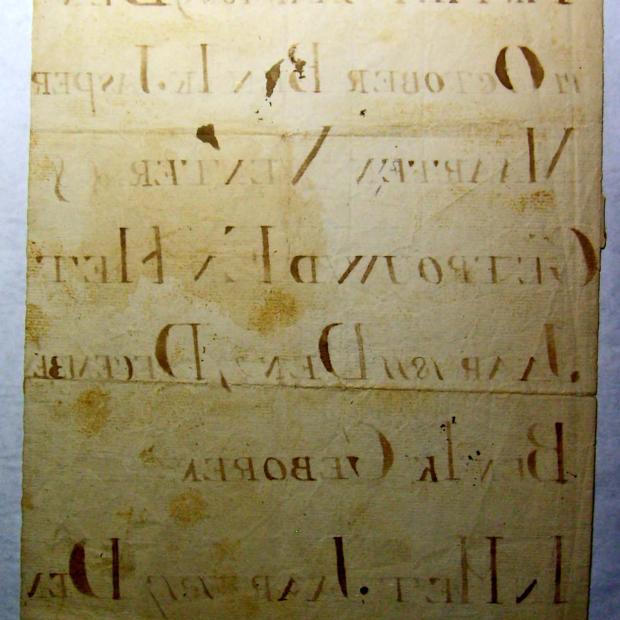 Den
October Ben Ik Jasper
Maarten Venter
Getrouwd En Het
Jaar 1811 Den 7 Decembe
Ben Ik Geboren
In Het Jaar 1817 Den